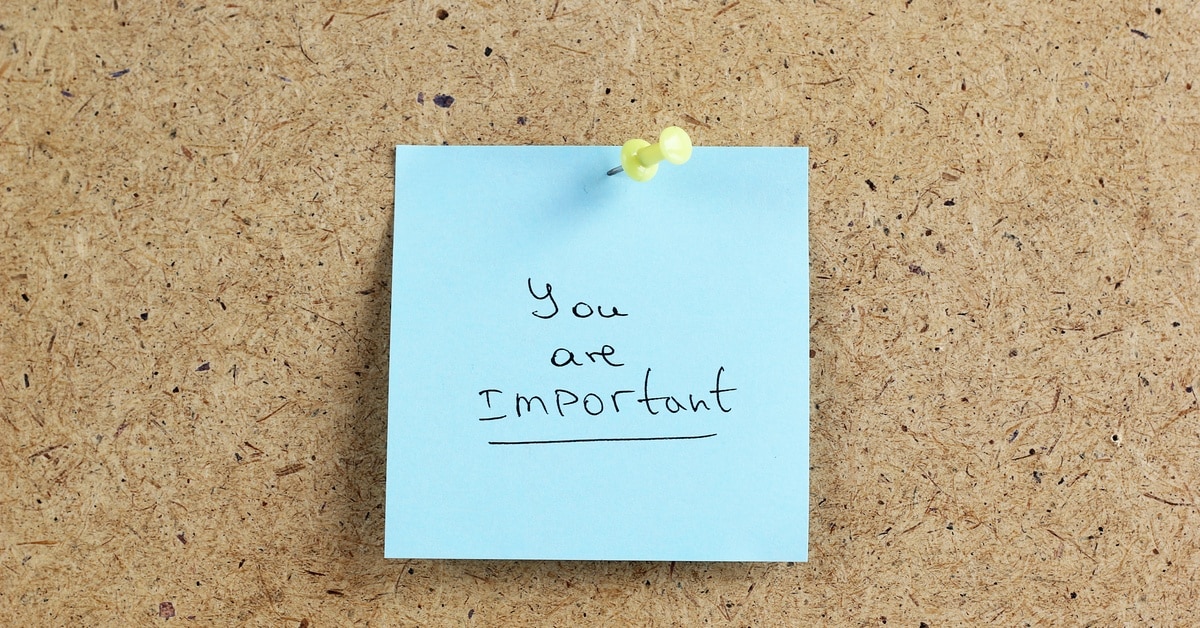 You
are
Important